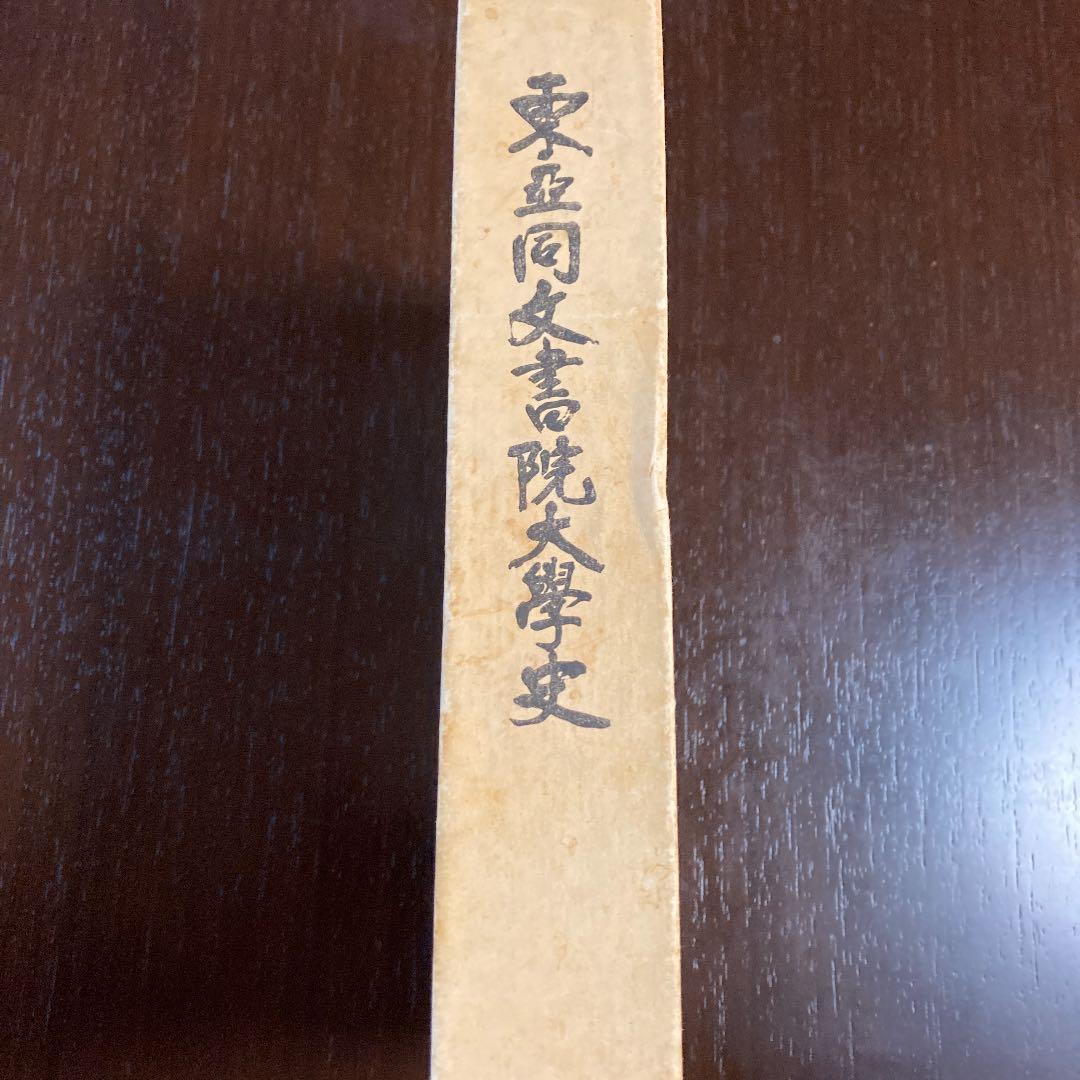 東亞同文書院大學史